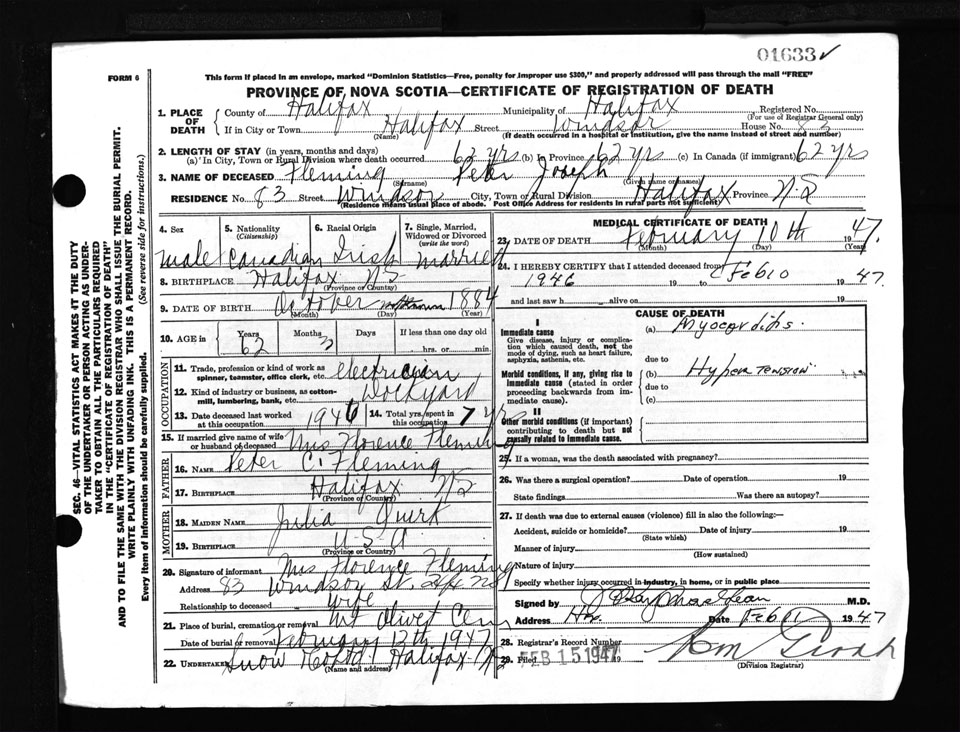 01633 ✓
FORM 6
This form if placed in an envelope, marked "Dominion Statistics—Free, penalty for improper use $300," and properly addressed will pass through the mail "FREE"
PROVINCE OF NOVA SCOTIA—CERTIFICATE OF REGISTRATION OF DEATH
1. PLACE OF DEATH County of Halifax Municipality of Halifax Registered No.
(For use of Registrar General only)
If in City or Town Halifax Street Windsor House No. 83
(Name) (If death occurred in a hospital or institution, give the name instead of street and number)
2. LENGTH OF STAY (in years, months and days)
(a) In City, Town or Rural Division where death occurred 62 yrs (b) In Province 62 yrs (c) In Canada (if immigrant) 62 yrs
3. NAME OF DECEASED Fleming Peter Joseph
(Surname) (Given name or names)
RESIDENCE No. 83 Street Windsor City, Town or Rural Division Halifax Province N.S
(Residence means usual place of abode. Post Office Address for residents in rural parts not sufficient)
SEC. 46—VITAL STATISTICS ACT MAKES IT THE DUTY
OF THE UNDERTAKER OR PERSON ACTING AS UNDER-
TAKER TO OBTAIN ALL THE PARTICULARS REQUIRED
IN THE "CERTIFICATE OF REGISTRATION OF DEATH"
AND TO FILE THE SAME WITH THE DIVISION REGISTRAR WHO SHALL ISSUE THE BURIAL PERMIT.
WRITE PLAINLY WITH UNFADING INK. THIS IS A PERMANENT RECORD.
Every item of information should be carefully supplied. (See reverse side for instructions.)
4. Sex 5. Nationality (Citizenship) 6. Racial Origin 7. Single, Married, Widowed or Divorced (write the word)
male Canadian Irish married
8. BIRTHPLACE Halifax NS
(Province or Country)
9. DATE OF BIRTH October 1884
(Month) (Day) (Year)
10. AGE in Years Months Days If less than one day old
62 hrs. or min.
OCCUPATION
11. Trade, profession or kind of work as spinner, teamster, office clerk, etc. electrician
12. Kind of industry or business, as cotton-mill, lumbering, bank, etc. Dockyard
13. Date deceased last worked at this occupation 1946 14. Total yrs. spent in this occupation 7 yrs
15. If married give name of wife or husband of deceased Mrs Florence Fleming
FATHER
16. NAME Peter C. Fleming
17. BIRTHPLACE Halifax NS
(Province or Country)
MOTHER
18. MAIDEN NAME Julia Quirk
19. BIRTHPLACE U.S.A
(Province or Country)
20. Signature of informant Mrs. Florence Fleming
Address 83 Windsor St. Hfx NS
Relationship to deceased Wife
21. Place of burial, cremation or removal Mt Olivet Cem
Date of burial or removal February 12th 1947
22. UNDERTAKER Snow & Co Ltd Halifax NS
(Name and address)
MEDICAL CERTIFICATE OF DEATH
23. DATE OF DEATH February 10th 1947.
(Month) (Day) (Year)
24. I HEREBY CERTIFY that I attended deceased from
1946 19 to Feb 10 1947
and last saw h alive on 19
CAUSE OF DEATH
I
Immediate cause (a) Myocarditis.
Give disease, injury or complication which caused death, not the mode of dying, such as heart failure, asphyxia, asthenia, etc.
due to
Morbid conditions, if any, giving rise to immediate cause (stated in order proceeding backwards from immediate cause). (b) Hypertension
due to
(c)
II
Other morbid conditions (if important) contributing to death but not causally related to immediate cause.
25. If a woman, was the death associated with pregnancy?
26. Was there a surgical operation? Date of operation 19
State findings Was there an autopsy?
27. If death was due to external causes (violence) fill in also the following:—
Accident, suicide or homicide? Date of injury 19
(State which)
Manner of injury
(How sustained)
Nature of injury
Specify whether injury occurred in industry, in home, or in public place
Signed by M.D.
Address Hfx. Date Feb 11 1947
28. Registrar's Record Number
29. Filed FEB 15 1947 19
(Division Registrar)